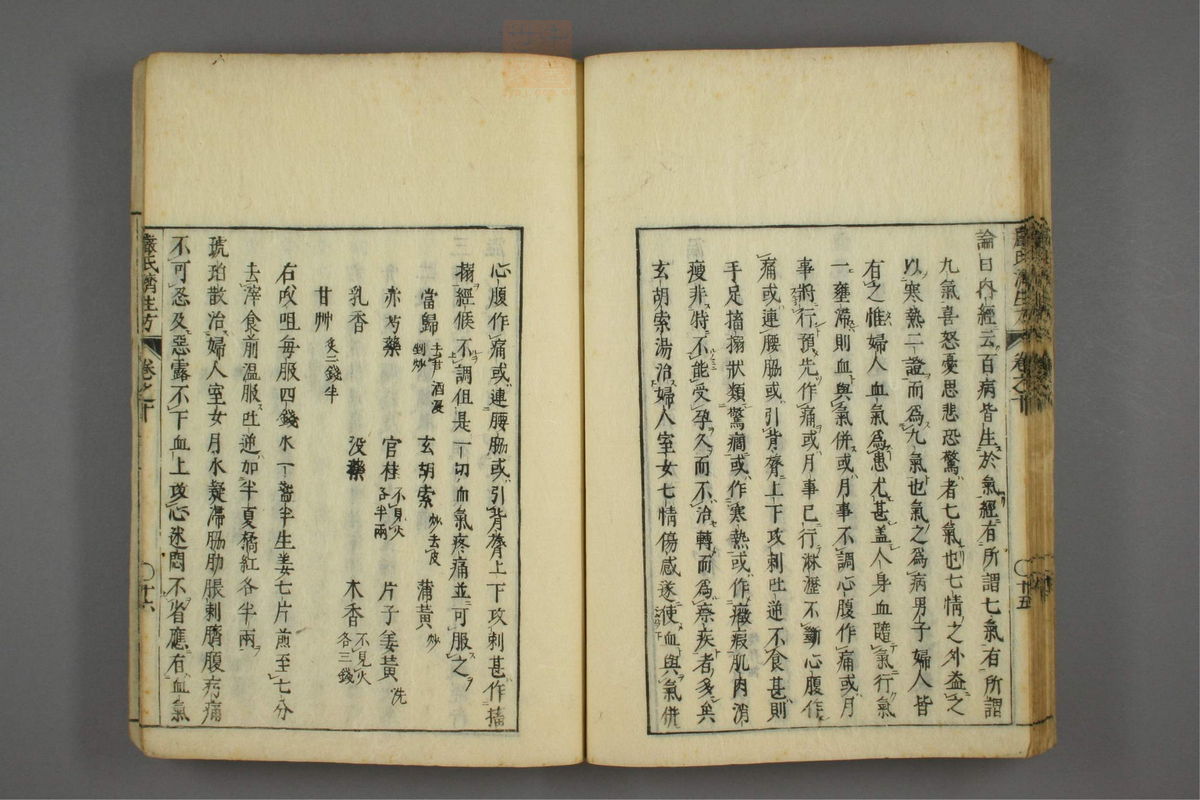 論曰內經云百病皆生於氣經有所謂七氣有所謂
九氣喜怒憂思悲恐驚者七氣也七情之外益之
以寒熱二證而爲九氣也氣之爲病男子婦人皆
有之惟婦人血氣爲患尤甚盖人身血隨氣行氣
一壅滯則血與氣併或月事不調心腹作痛或月
事將行預先作痛或月事已行淋瀝不斷心腹作
痛或連腰脇或引背膂上下攻刺吐逆不食甚則
手足搐搦狀類驚癇或作寒熱或作癥瘕肌肉消
瘦非特不能受孕久而不治轉而爲瘵疾者多矣
玄胡索湯治婦人室女七情傷感遂使血與氣併
心腹作痛或連腰脇或引背膂上下攻刺甚作搐
搦經候不調但是一切血氣疼痛並可服之
當歸去首酒浸剉炒 玄胡索炒去皮 蒲黃炒
赤芍藥 官桂不見火各半兩 片子姜黃洗
乳香 没藥 木香不見火各三錢
甘艸炙二錢半
右㕮咀每服四錢水一盞半生姜七片煎至七分
去滓食前温服吐逆加半夏橘紅各半兩
琥珀散治婦人室女月水凝滯脇肋脹刺臍腹疞痛
不可忍及惡露不下血上攻心迷悶不省應有血氣
嚴氏濟生方 卷之十 十五
嚴氏濟生方 卷之十 十六